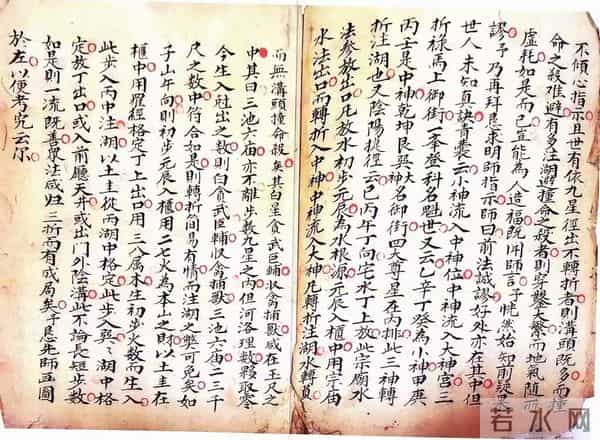 不傾心指示且世有依九星徑出不轉折者則溝頭既多而撞
命之殺难避有多注湖避撞命之殺者則穿鑿大繁而地氣隨
虛耗如是而已豈能為人造福既開師言予恍然始知前誤
謬予乃再拜恳求明師指示師曰前法誠謬好处亦在其中但
世人未知真訣青囊云小神流入中神位中神流入大神宮三
折祿馬上御街一舉登科名魁世又云乙辛丁癸為小神甲庚
丙壬是中神乾坤艮巽大神名御街四大尊星在內排此三神轉
折注湖也又陰陽捷徑云巳丙午丁向宅水丁上放此宗廟水
法參放出口凡放水初步元辰為水根源元辰入櫃中用宗庙
水法出口而轉折入中神中神流入大神凡轉折注湖水轉頁
而無溝頭撞命殺矣其白星貪武巨輔收禽捕獸咸在玉尺之
中其曰三池六庙亦不離步数九星之內但河洛理数夥取零
今生入尅出之数則白貪武巨輔收禽捕獸三池六庙二三千
尺之数中符合如是則轉折简易有情而注湖之弊可免矣如
子山午向則初步元辰入櫃用二七火為本山之財以土圭在
櫃中用羅經格定丁上出口用三八属木生初步火数而生入
此步入丙中注湖以土圭從丙湖中格定此步入巽巽湖中格
定放丁出口或入前廳天井或出門外陰溝此不論長短步数
如是則一流既善衆注咸归三折而有成局矣予恳先師画圖
於左以便考究云尔
若水网